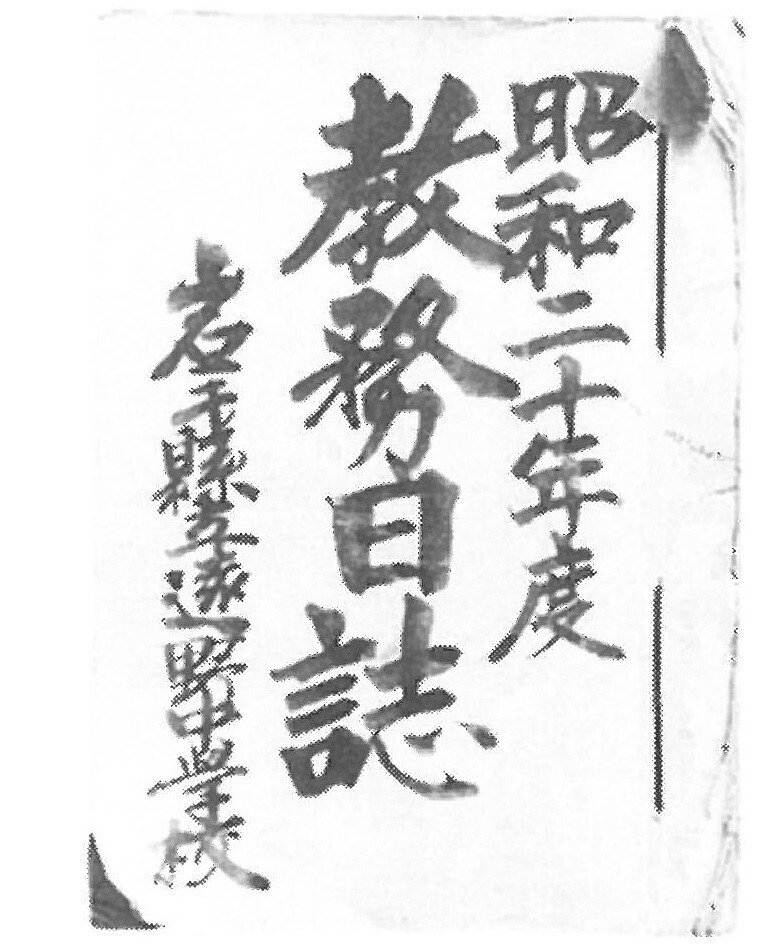 昭和二十年度
教務日誌
岩手縣立遠野中學校